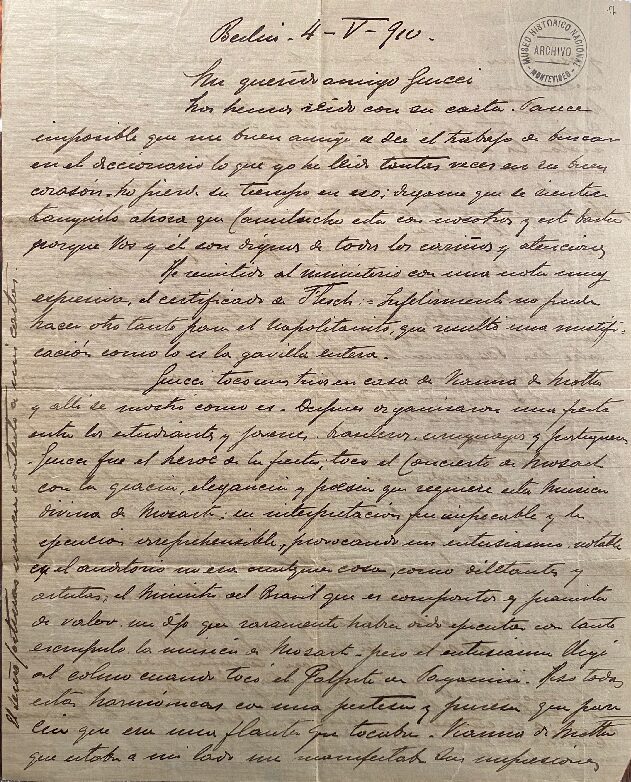 Berlin - 4 - V - 910.
MUSEO HISTORICO NACIONAL
ARCHIVO
MONTEVIDEO
Mi querido amigo Gucci
Nos hemos reido con su carta. Parece
imposible que mi buen amigo se dee el trabajo de buscar
en el diccionario lo que yo he leido tantas veces en su buen
corazon. No pierda su tiempo en eso; digame que se siente
tranquilo ahora que Camilucho esta con nosotros y esto basta
porque Vos y él son dignos de todos los cariños y atenciones
He remitido al ministerio con una nota muy
espresiva, el certificado de Flesch. - no pude
hacer otro tanto para el Napolitanito, que resultó una mistifi-
cación como lo es la gavilla entera.
Gucci toco en casa de Vianna da Motta
y alli se mostro como es. Despues organisaron una fiesta
entre los estudiantes y jovenes brasileros, uruguayos y portugueses
Gucci fue el heroe de la fiesta, toco el Concierto de Mozart
con la gracia, elegancia y poesia que requiere esta musica
divina de Mozart. su interpretacion fue impecable y la
ejecucion irreprehensible, provocando un entusiasmo notable
el auditorio no era cualquier cosa, como diletantes y
artistas, el Ministro del Brasil que es compositor y pianista
de valor, me dijo que raramente habia oido ejecutar con tanto
escrupulo la musica de Mozart - pero el entusiasmo llegó
al colmo cuando tocó el Palpiti de Paganini. Hizo todos
estos harmónicos con una justeza y pureza que pare
cia que era una flauta que tocaba. Vianna da Motta
que estaba a mi lado me manifestaba sus impresiones
El señor nunca contesto a mis cartas.